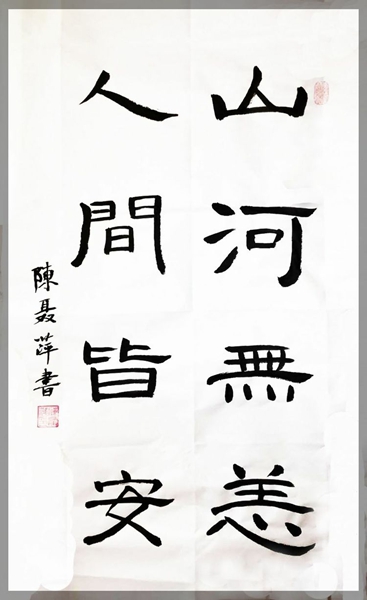 山河無恙
人間皆安
陳聂萍書